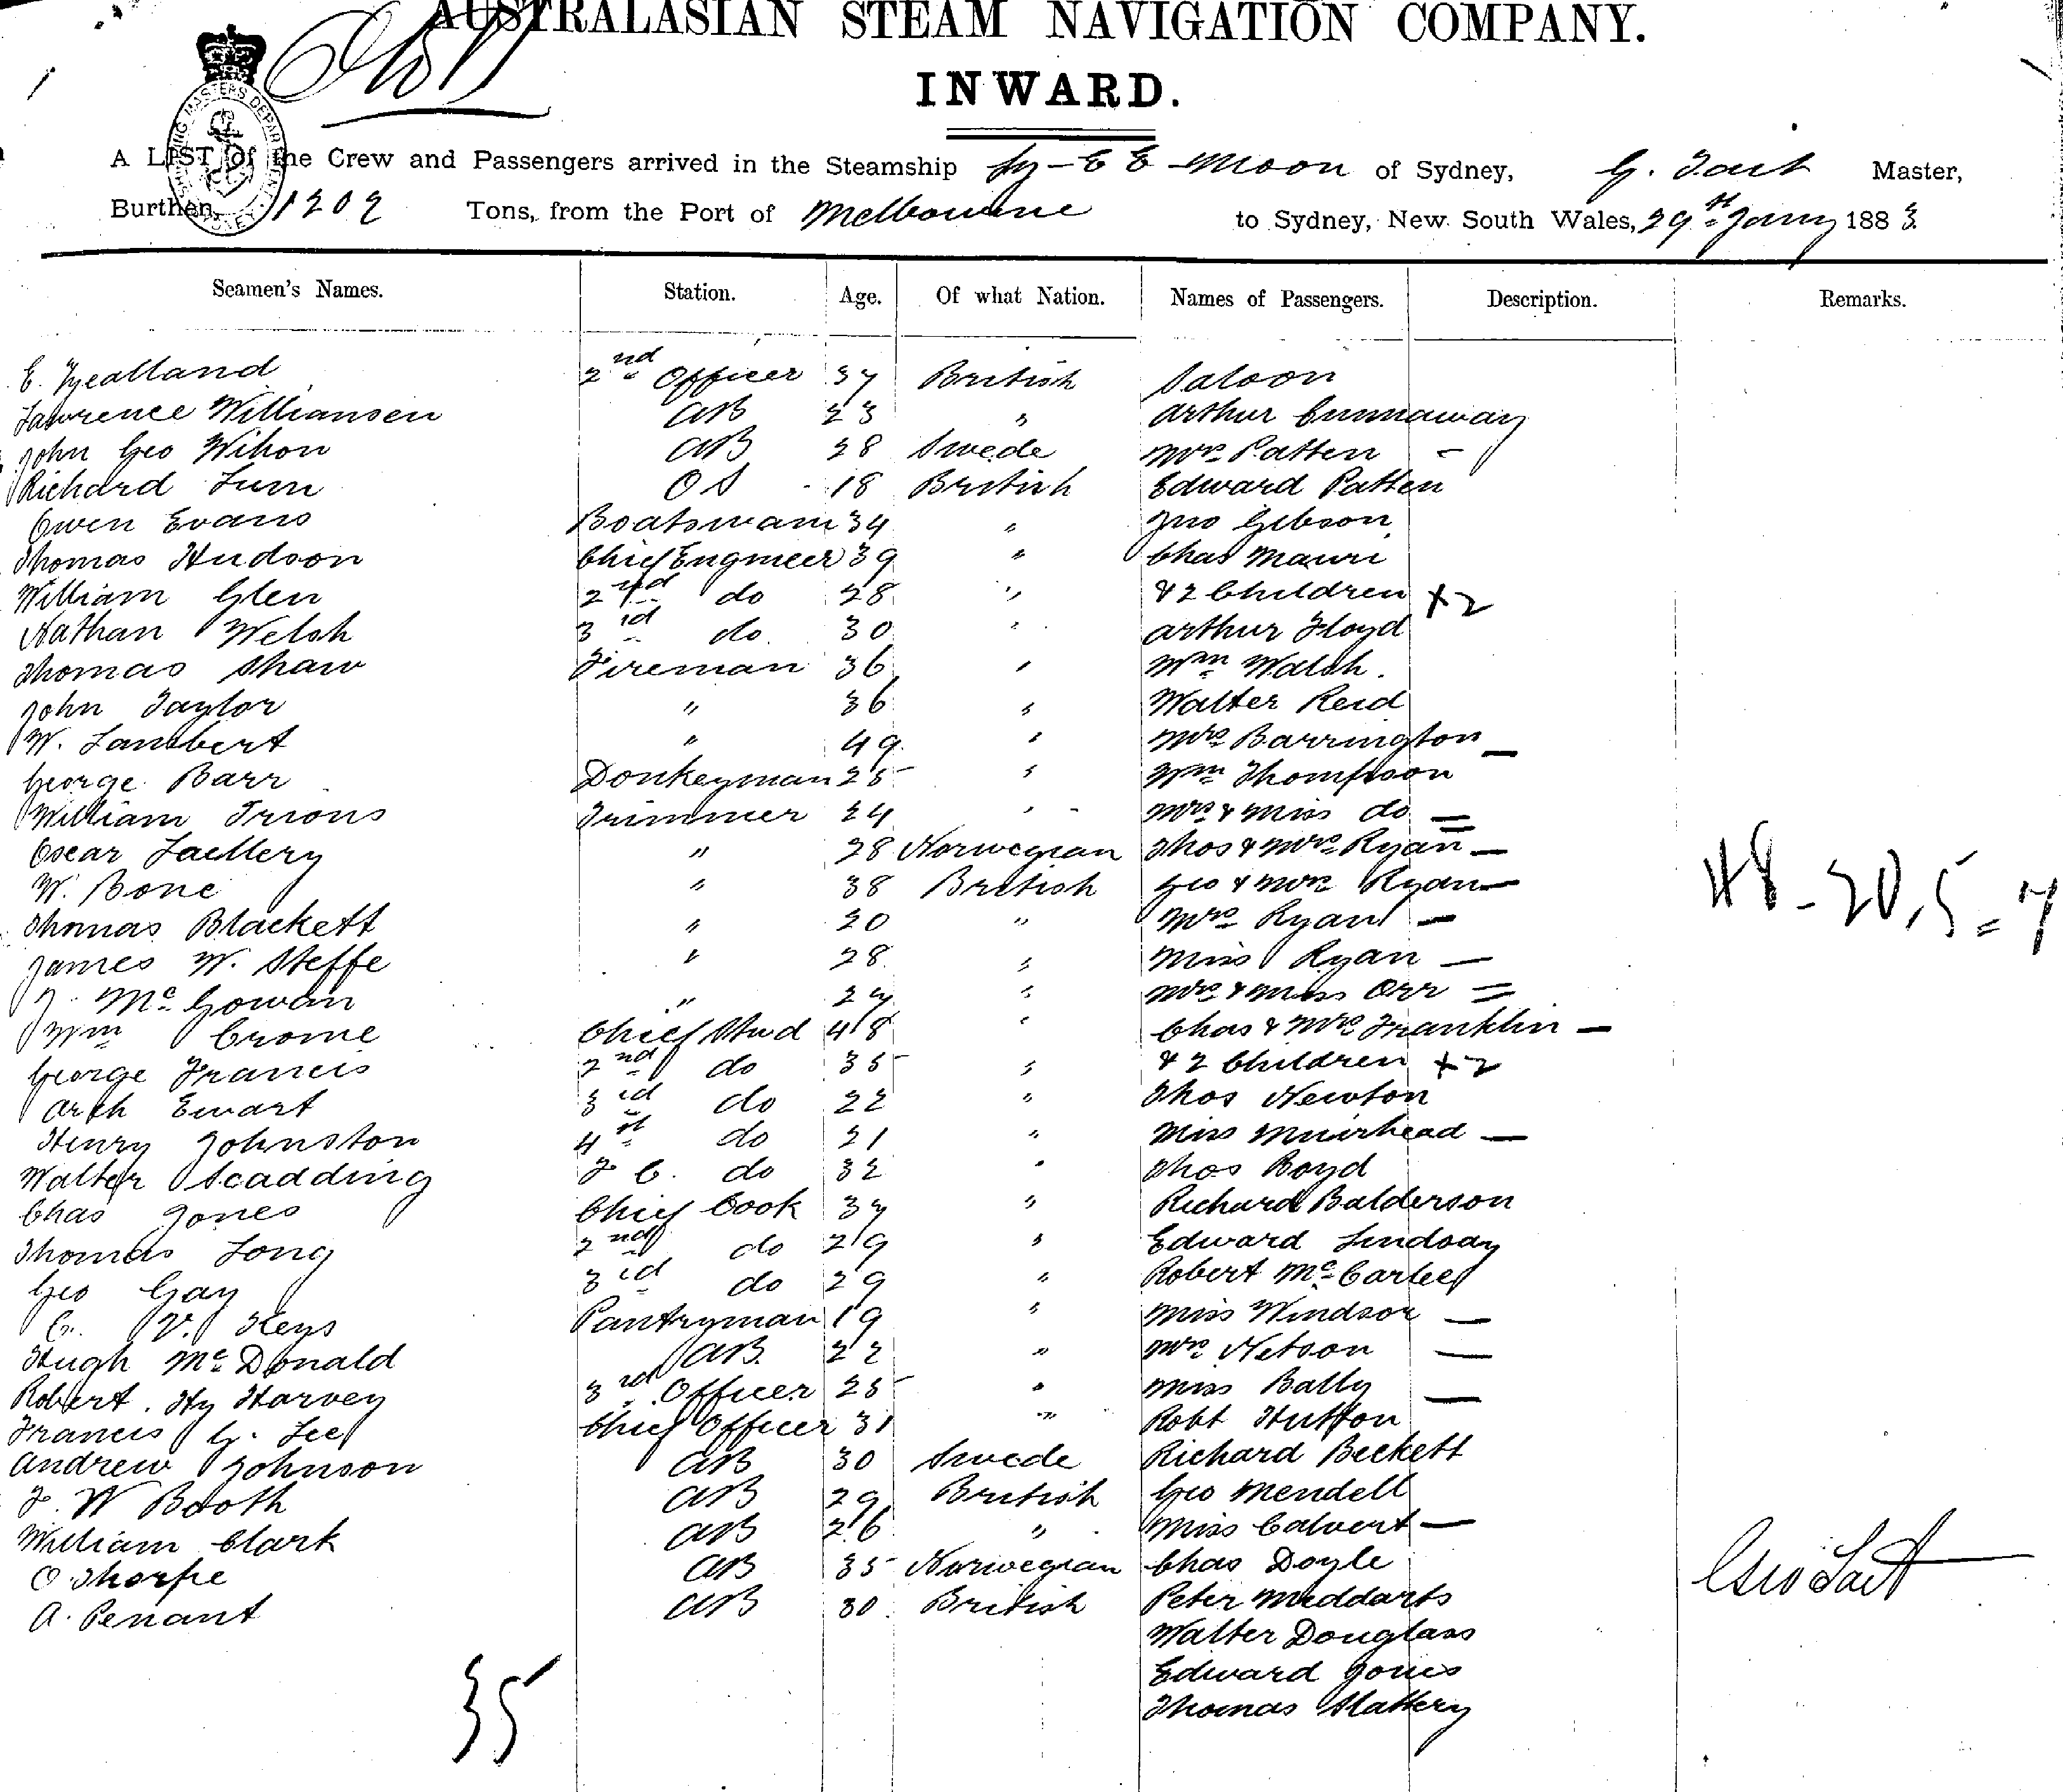 AUSTRALASIAN STEAM NAVIGATION COMPANY.
INWARD.
A LIST of the Crew and Passengers arrived in the Steamship Ly-E E-Moon of Sydney, G. Tait Master,
Burthen, 1202 Tons, from the Port of Melbourne to Sydney, New South Wales, 29th Jany 1883
Seamen's Names. Station. Age. Of what Nation. Names of Passengers. Description. Remarks.
E. 2nd Officer 37 British Saloon
Lawrence Williamsen AB 23 " Arthur
John Geo Wilson AB 28 Swede Mrs Patten -
Richard Lum OS 18 British Edward Patten
Owen Evans Boatswain 34 " Jno Gibson
Thomas Hudson Chief Engineer 39 " Chas
William Glen 2nd do 28 " & 2 Children +2
Nathan Welsh 3rd do 30 " Arthur Floyd
Thomas Shaw Fireman 36 " Wm Walsh.
John Taylor " 36 " Walter Reid
W. Lambert " 49 " Mrs Barrington -
George Barr Donkeyman 25 " Wm Thompson
William Irions Trimmer 24 " Mrs & Miss do =
Oscar " 28 Norwegian Thos & Mrs Ryan -
W. Bone " 38 British Geo & Mrs Ryan -
Thomas Blackett " 20 " Mrs Ryan -
James W. Steffe " 28 " Miss Ryan -
McGowan " 24 " Mrs & Miss Orr =
Wm Crome Chief Stwd 48 " Chas & Mrs Franklin -
George Francis 2nd do 35 " & 2 Children +2
Arch Ewart 3rd do 22 " Thos Newton
Henry Johnston 4th do 21 " Miss Muirhead -
Walter Scadding F C. do 32 " Thos Boyd
Chas Jones Chief Cook 34 " Richard Balderson
Thomas Long 2nd do 29 " Edward Lindsay
Geo Gay 3rd do 29 " Robert
V. Keys Pantryman 19 " Miss Windsor -
Hugh McDonald AB. 22 " Mrs Netson -
Robert. Hy Harvey 3rd Officer 25 " Miss Bally -
Francis G. Lee Chief Officer 31 " Robt Hutton
Andrew Johnson AB 30 Swede Richard Beckett
W Booth AB 29 British Geo Mendell
William Clark AB 26 " Miss Calvert -
O. Thorpe AB 35 Norwegian Chas Doyle
A. Penant AB 30 British Peter Meddarts
Walter Douglass
Edward Jones
Thomas Slattery
48-20,5=7
Geo Tait
35